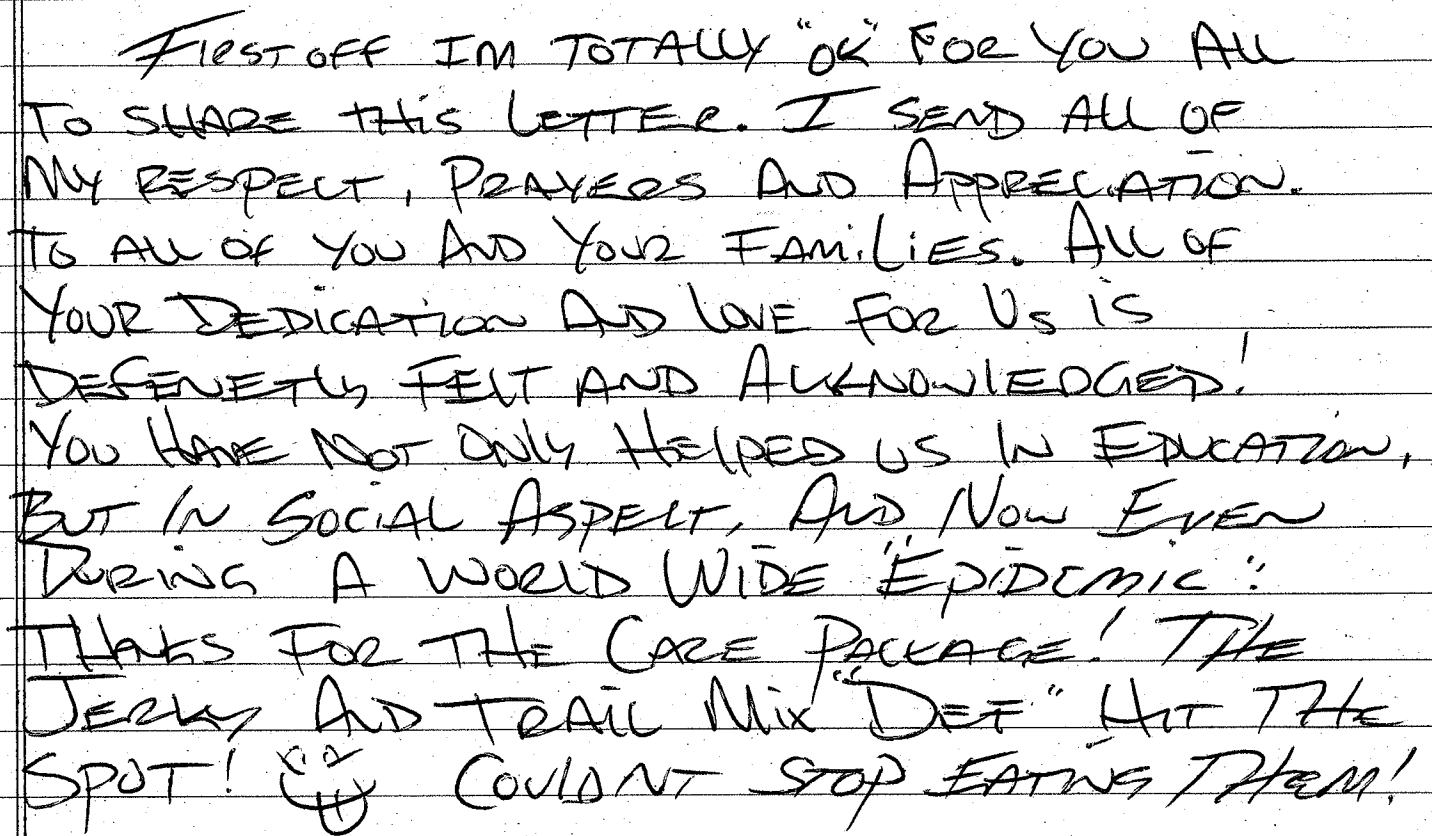 First off Im totally "ok" for you all
to share this letter. I send all of
my respect, prayers and appreciation.
To all of you and your families. All of
your dedication and love for us is
defenetly felt and acknowledged!
You have not only helped us in education,
but in social aspect, and now even
during a world wide "epidemic".
Thanks for the care package! The
jerky and trail mix "def" hit the
spot! Couldnt stop eating them!